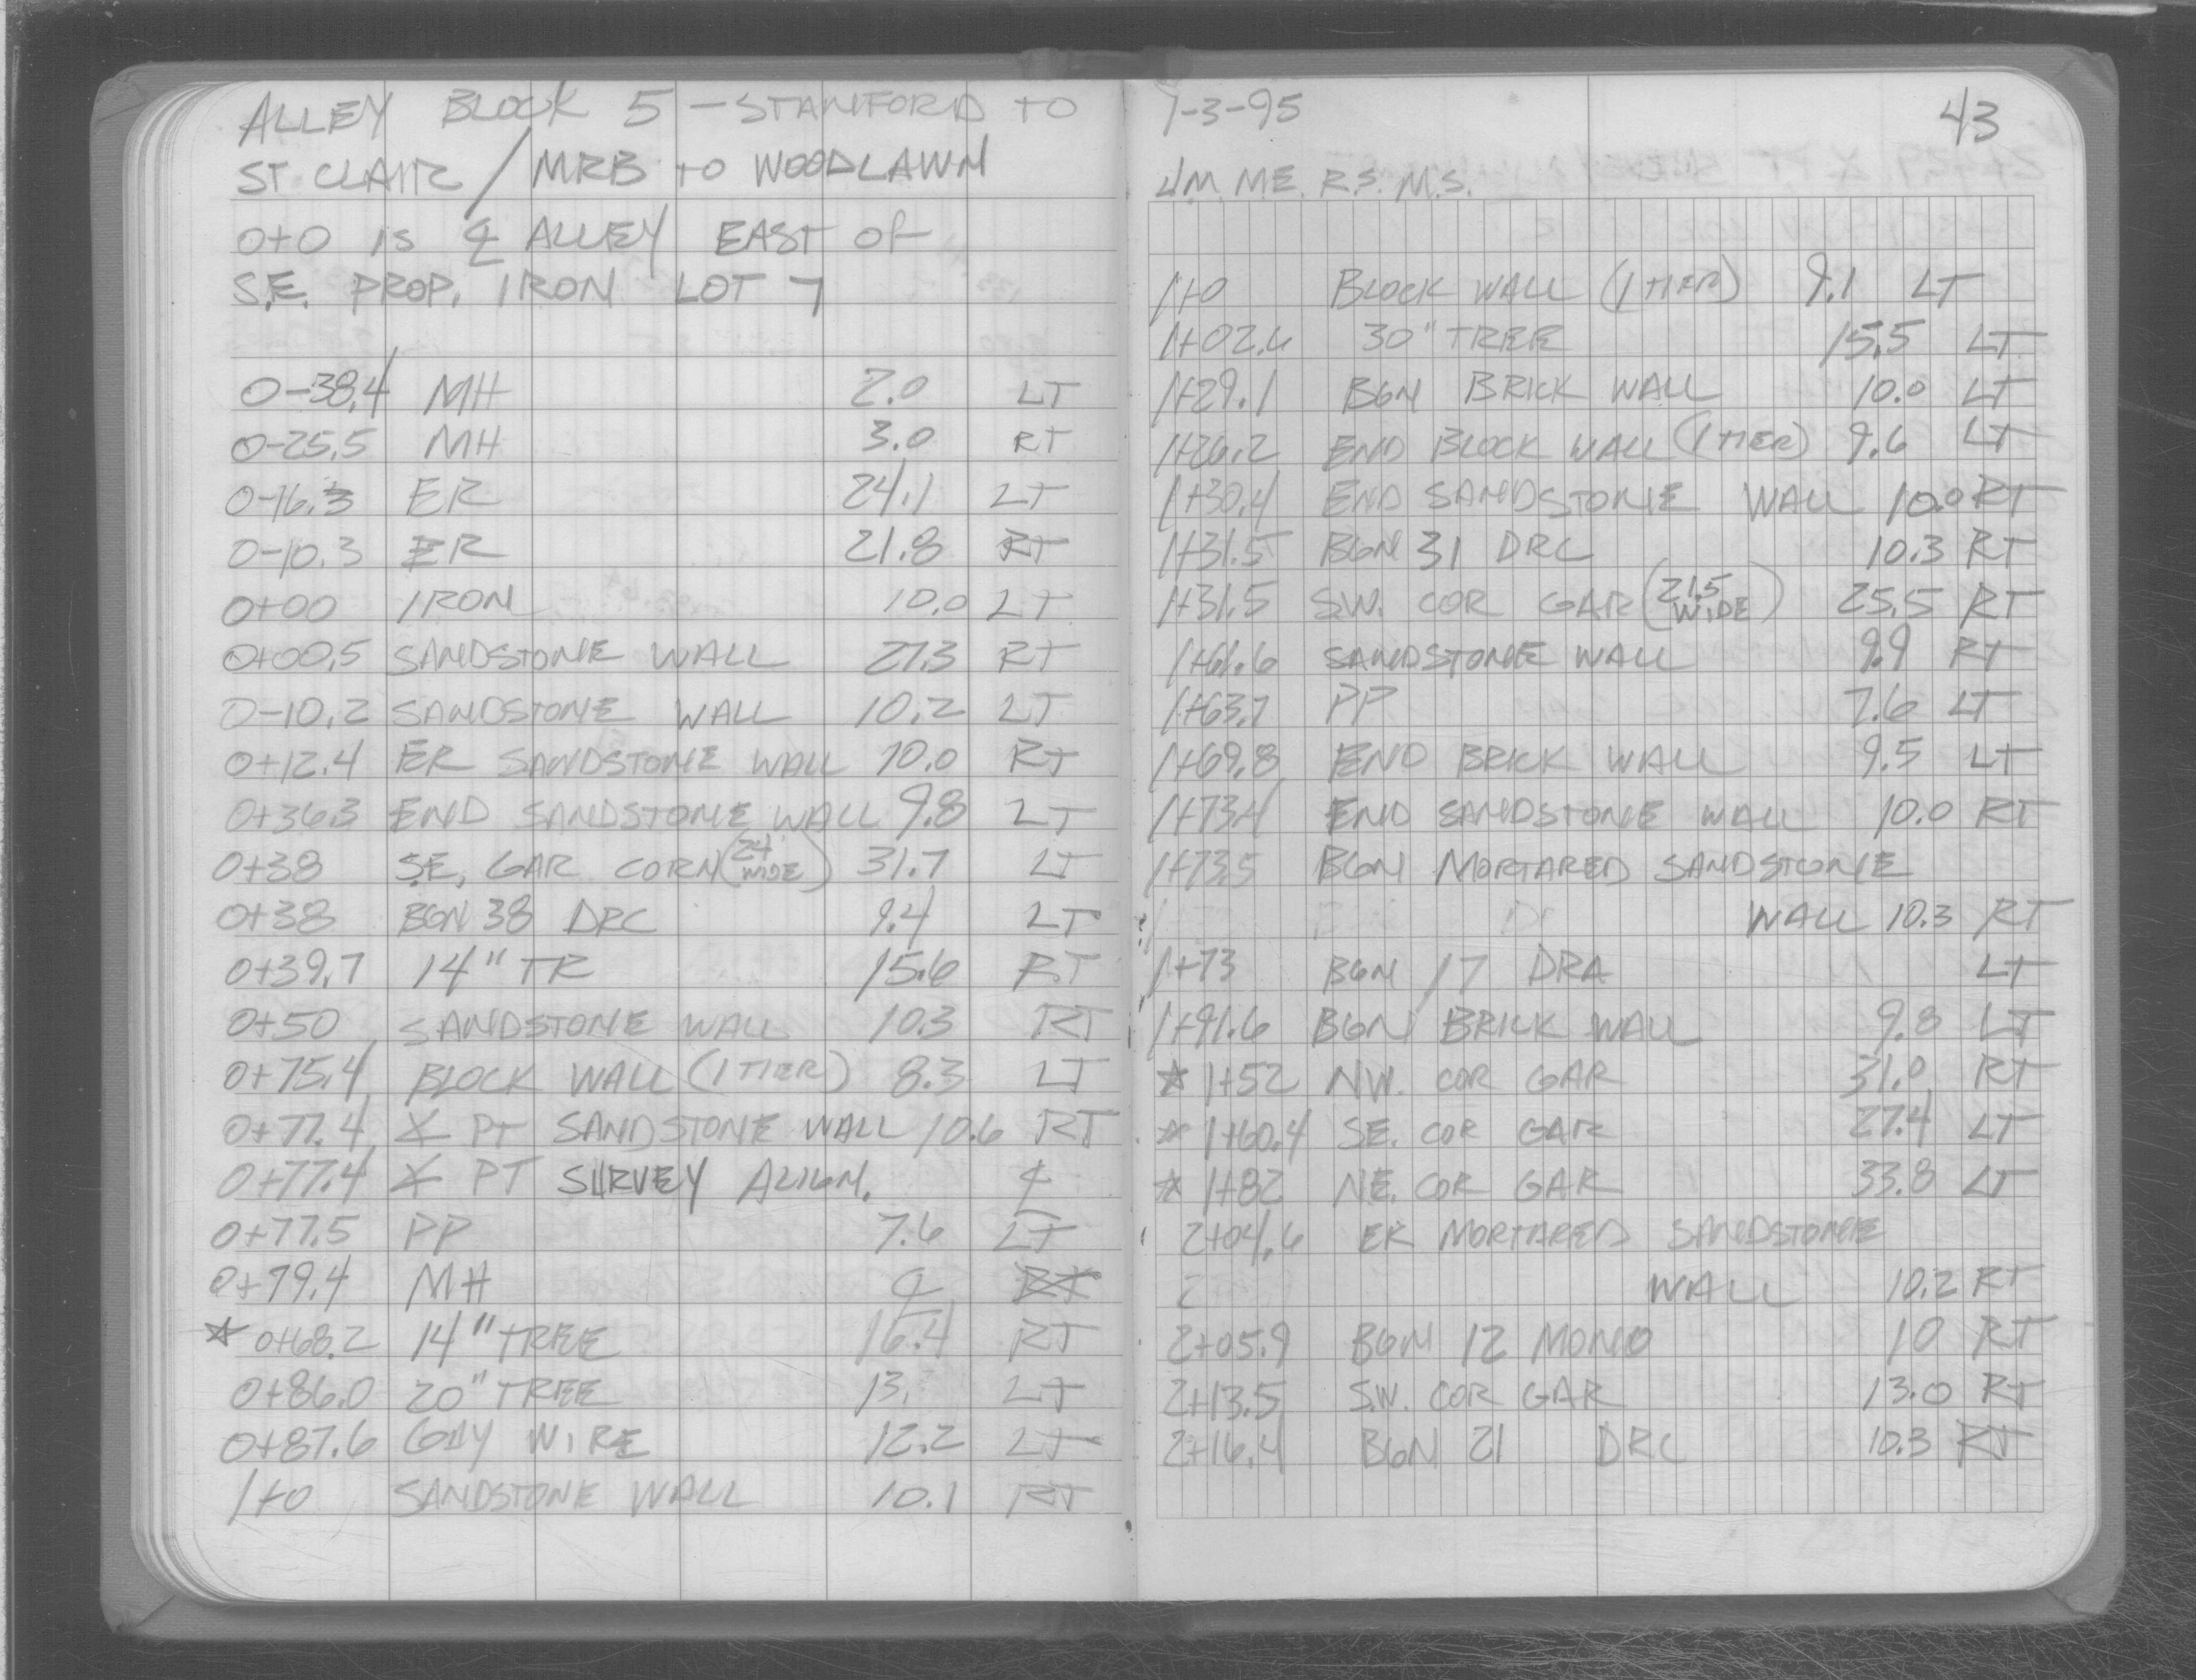 ALLEY BLOCK 5 - STANFORD TO
ST. CLAIR / MRB TO WOODLAWN
0+0 IS ℄ ALLEY EAST OF
S.E. PROP. IRON LOT 7
0-38.4 MH 2.0 LT
0-25.5 MH 3.0 RT
0-16.3 ER 24.1 LT
0-10.3 ER 21.8 RT
0+00 IRON 10.0 LT
0+00.5 SANDSTONE WALL 27.3 RT
0-10.2 SANDSTONE WALL 10.2 LT
0+12.4 ER SANDSTONE WALL 10.0 RT
0+36.3 END SANDSTONE WALL 9.8 LT
0+38 S.E. GAR CORN (24' WIDE) 31.7 LT
0+38 BGN 38 DRC 9.4 LT
0+39.7 14" TR 15.6 RT
0+50 SANDSTONE WALL 10.3 RT
0+75.4 BLOCK WALL (1 TIER) 8.3 LT
0+77.4 ∠ PT SANDSTONE WALL 10.6 RT
0+77.4 ∠ PT SURVEY ALIGN. ℄
0+77.5 PP 7.6 LT
0+79.4 MH ℄ RT
☆ 0+68.2 14" TREE 16.4 RT
0+86.0 20" TREE 13. LT
0+87.6 GUY WIRE 12.2 LT
1+0 SANDSTONE WALL 10.1 RT
7-3-95 43
J.M. M.E. R.S. M.S.
1+0 BLOCK WALL (1 TIER) 9.1 LT
1+02.6 30" TREE 15.5 LT
1+29.1 BGN BRICK WALL 10.0 LT
1+26.2 END BLOCK WALL (1 TIER) 9.6 LT
1+30.4 END SANDSTONE WALL 10.0 RT
1+31.5 BGN 31 DRC 10.3 RT
1+31.5 S.W. COR GAR (21.5 WIDE) 25.5 RT
1+61.6 SANDSTONE WALL 9.9 RT
1+63.7 PP 7.6 LT
1+69.8 END BRICK WALL 9.5 LT
1+73.4 END SANDSTONE WALL 10.0 RT
1+73.5 BGN MORTARED SANDSTONE
WALL 10.3 RT
1+73 BGN 17 DRA LT
1+91.6 BGN BRICK WALL 9.8 LT
☆ 1+52 NW. COR GAR 31.0 RT
☆ 1+60.4 SE. COR GAR 27.4 LT
☆ 1+82 NE. COR GAR 33.8 LT
2+04.6 ER MORTARED SANDSTONE
WALL 10.2 RT
2+05.9 BGN 12 MONO 10 RT
2+13.5 S.W. COR GAR 13.0 RT
2+16.4 BGN 21 DRC 10.3 RT